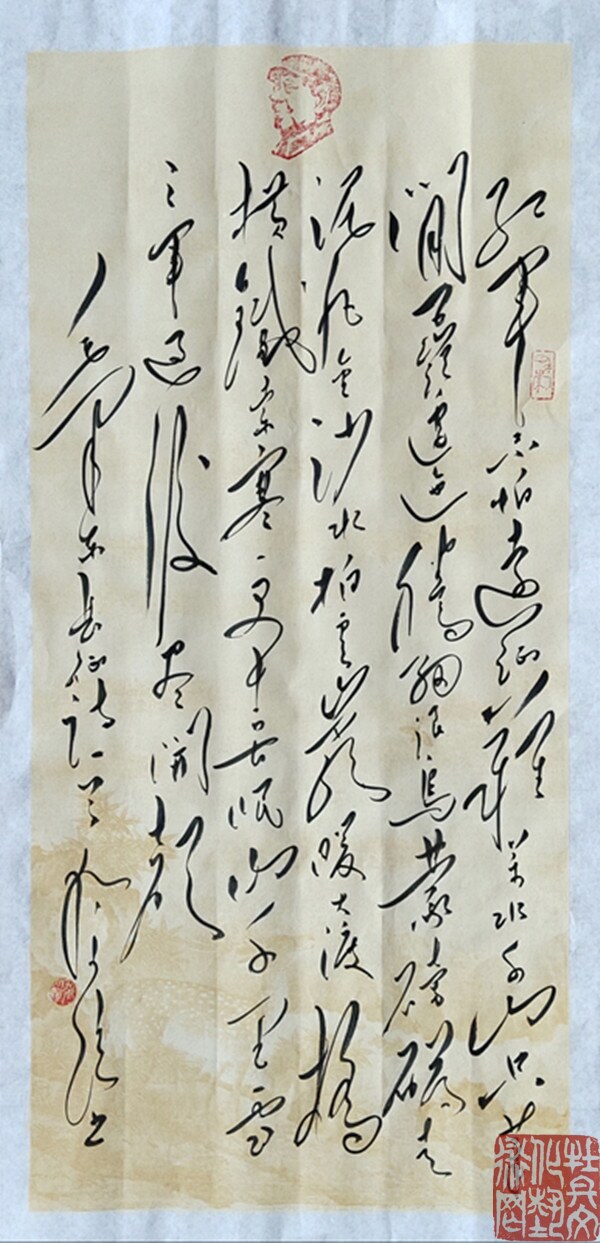 紅軍不怕遠征難萬水千山只等
閒五嶺逶迤騰細浪烏蒙磅礴走
泥丸金沙水拍雲崖暖大渡橋
橫鐵索寒更喜岷山千里雪
三軍過後盡開顏
毛澤東長征詩一首 书
牡丹文
化藝
術网